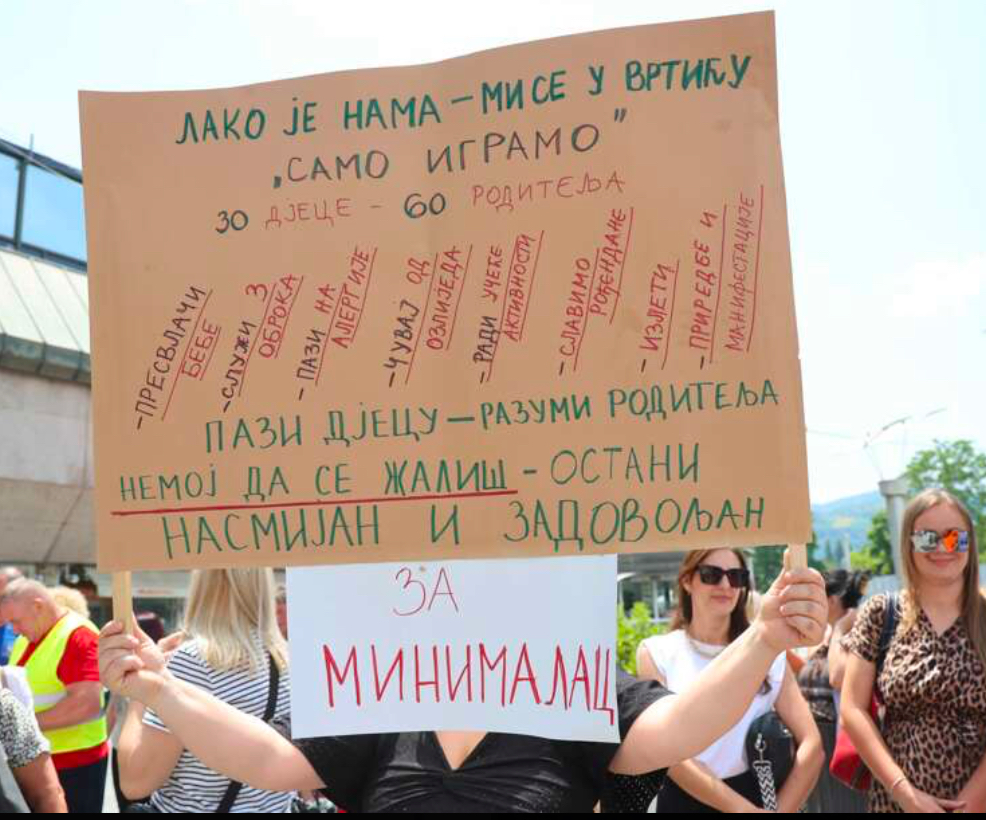 ЛАКО ЈЕ НАМА – МИ СЕ У ВРТИЋУ
„САМО ИГРАМО”
30 ДЈЕЦЕ – 60 РОДИТЕЉА
-ПРЕСВЛАЧИ
БЕБЕ
-СЛУЖИ 3
ОБРОКА
-ПАЗИ НА
АЛЕРГИЈЕ
-ЧУВАЈ ОД
ОЗЛИЈЕДА
-РАДИ УЧЕЋЕ
АКТИВНОСТИ
-СЛАВИМО
РОЂЕНДАНЕ
-ИЗЛЕТИ
-ПРИРЕДБЕ И
МАНИФЕСТАЦИЈЕ
ПАЗИ ДЈЕЦУ – РАЗУМИ РОДИТЕЉА
НЕМОЈ ДА СЕ ЖАЛИШ - ОСТАНИ
НАСМИЈАН И ЗАДОВОЉАН
ЗА
МИНИМАЛАЦ